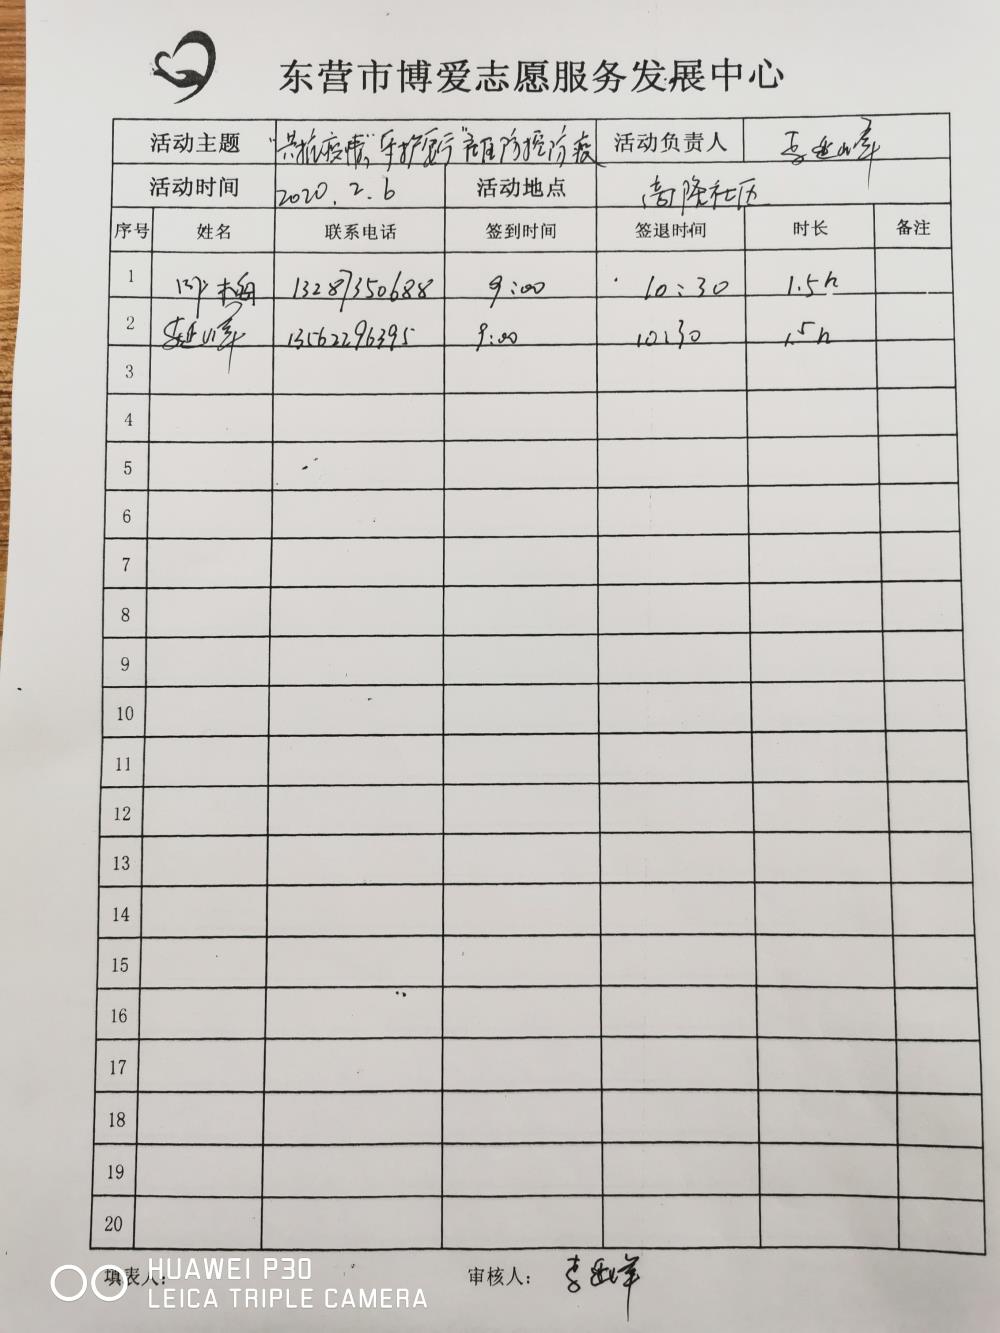 东营市博爱志愿服务发展中心
活动主题 "共抗疫情,守护医疗"社区防控防疫 活动负责人 李延峰
活动时间 2020.2.6 活动地点 高隆社区
序号 姓名 联系电话 签到时间 签退时间 时长 备注
1 13287350688 9:00 10:30 1.5h
2 李延峰 13562296395 9:00 10:30 1.5h
3
4
5
6
7
8
9
10
11
12
13
14
15
16
17
18
19
20
填表人: 审核人: 李延峰
HUAWEI P30
LEICA TRIPLE CAMERA